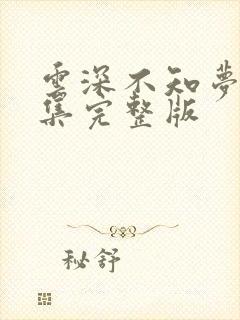 雲深不知夢
集完整版
秘舒